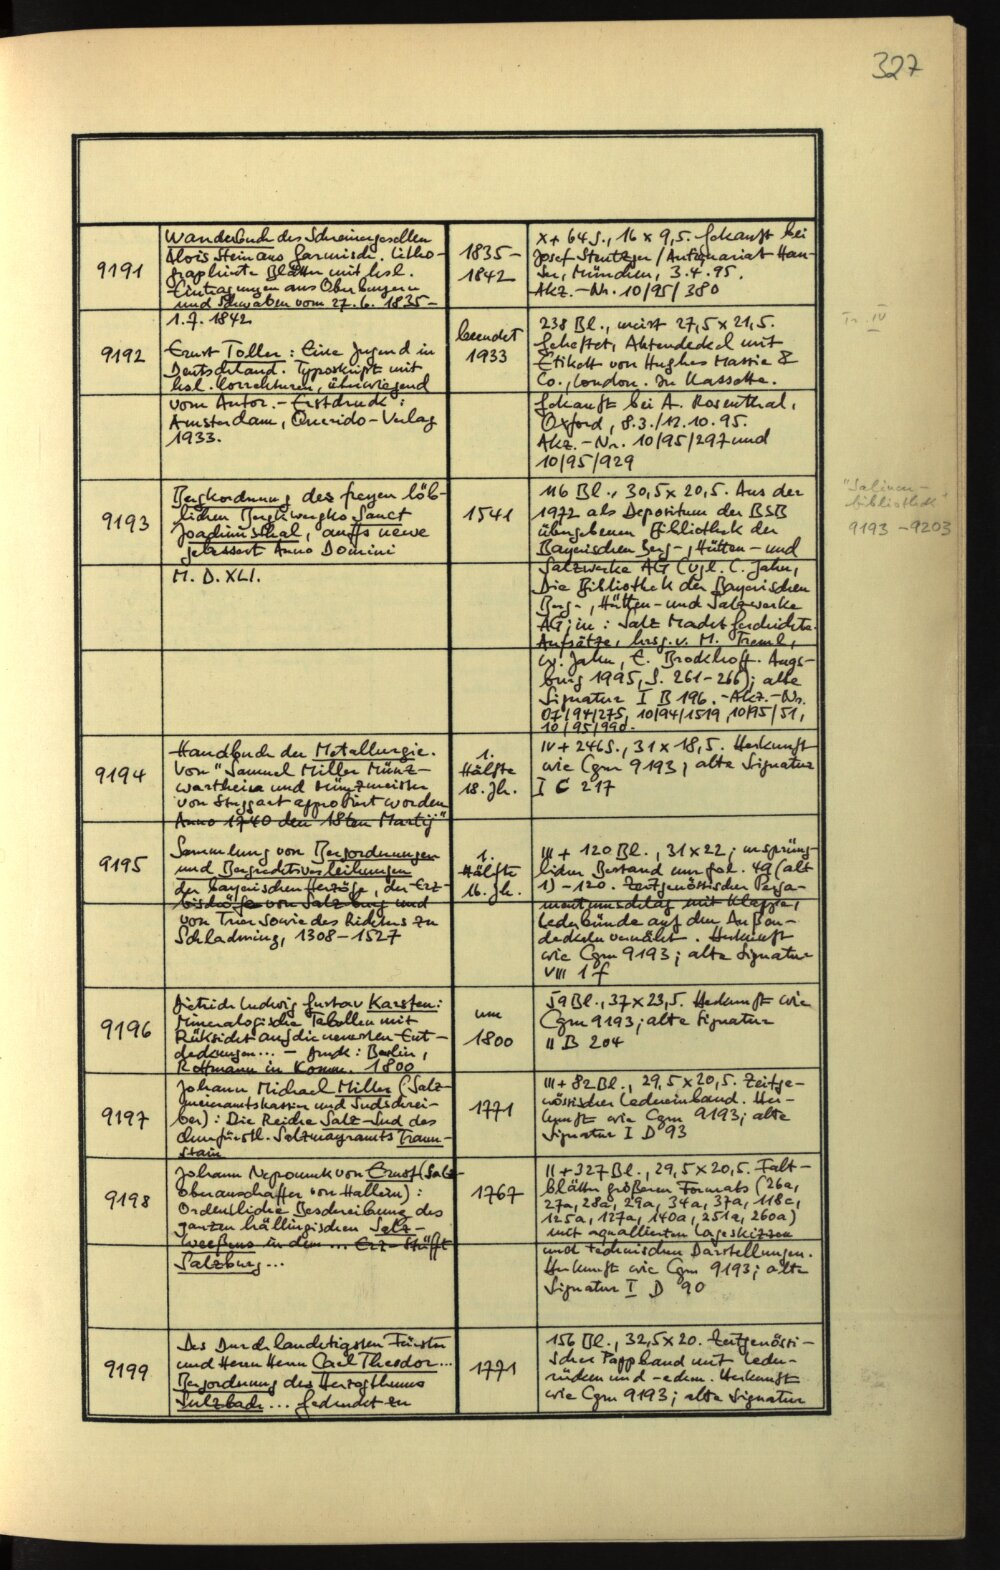 327
9191
Wanderbuch des Schreinergesellen
Alois Stein aus Garmisch. Litho-
graphierte Blätter mit hsl.
Eintragungen aus Oberbayern
und Schwaben vom 27.6. 1835-
1.7. 1842
1835-
1842
X + 64 S., 16 x 9,5. Gekauft bei
Josef Steutzger / Antiquariat Hau-
ser, München, 3.4.95.
Akz.-Nr. 10/95/380
9192
Ernst Toller: Eine Jugend in
Deutschland. Typoskript mit
hsl. Korrekturen, überwiegend
vom Autor. - Erstdruck:
Amsterdam, Querido-Verlag
1933.
beendet
1933
238 Bl., meist 27,5 x 21,5.
Geheftet, Aktendeckel mit
Etikett von Hughes Massie &
Co., London. In Kassette.
Gekauft bei A. Rosenthal,
Oxford, 8.3./12.10.95.
Akz.-Nr. 10/95/297 und
10/95/929
Tr. IV
9193
Bergkordnung des freyen löb-
lichen Berghwergks Sanct
Joachimsthal, auffs newe
gebessert Anno Domini
M.D.XLI.
1541
116 Bl., 30,5 x 20,5. Aus der
1972 als Depositum der BSB
übergebenen Bibliothek der
Bayerischen Berg-, Hütten- und
Salzwerke AG (vgl. C. Jahn,
Die Bibliothek der Bayerischen
Berg-, Hütten- und Salzwerke
AG, in: Salz Macht Geschichte.
Aufsätze, hrsg. v. M. Treml,
W. Jahn, E. Brockhoff. Augs-
burg 1995, S. 261-266); alte
Signatur I B 196. - Akz.-Nr.
07/94/275, 10/94/1519, 10/95/51,
10/95/990.
"Salinen-
bibliothek"
9193 - 9203
9194
Handbuch der Metallurgie.
Von "Samuel Miller Münz-
wardtein und Münzmeister
von Stuggart approbirt worden
Anno 1740 den 18ten Martij"
1.
Hälfte
18. Jh.
IV + 246 S., 31 x 18,5. Herkunft
wie Cgm 9193; alte Signatur
I C 217
9195
Sammlung von Bergordnungen
und Bergrechtsverleihungen
der bayerischen Herzöge, der Erz-
bischöfe von Salzburg und
von Trier sowie des Richters zu
Schladming, 1308-1527
1.
Hälfte
16. Jh.
III + 120 Bl., 31 x 22; ursprüng-
licher Bestand nur fol. 49 (alt
1) - 120. Zeitgenössischer Perga-
mentumschlag mit Klappe,
Lederbünde auf den Außen-
deckeln vernäht. Herkunft
wie Cgm 9193; alte Signatur
VIII 1 f
9196
Dietrich Ludwig Gustav Karsten:
Mineralogische Tabellen mit
Rüksicht auf die neuesten Ent-
deckungen... - Druck: Berlin,
Rottmann in Komm. 1800
um
1800
59 Bl., 37 x 23,5. Herkunft wie
Cgm 9193; alte Signatur
II B 204
9197
Johann Michael Miller (Salz-
meieramtskassier und Sudschrei-
ber): Die Reiche Salz-Sud des
churfürstl. Salzmayramts Traun-
stain
1771
III + 82 Bl., 29,5 x 20,5. Zeitge-
nössischer Ledereinband. Her-
kunft wie Cgm 9193; alte
Signatur I D 93
9198
Johann Nepomuk von Ernst (Salz-
oberanschaffer von Hallein):
Ordentliche Beschreibung des
ganzen hällingischen Salz-
Weeßens in dem ... Erz-Stüfft
Salzburg...
1767
II + 327 Bl., 29,5 x 20,5. Falt-
blätter größeren Formats (26a,
27a, 28a, 29a, 34a, 37a, 118c,
125a, 127a, 140a, 251a, 260a)
mit aquallierten Lageskizzen
und technischen Darstellungen.
Herkunft wie Cgm 9193; alte
Signatur I D 90
9199
Des Durchlauchtigsten Fürsten
und Herrn Herrn Carl Theodor...
Bergordnung des Herzogthums
Sulzbach... Gedruckt zu
1771
156 Bl., 32,5 x 20. Zeitgenössi-
scher Pappband mit Leder-
rücken und -ecken. Herkunft
wie Cgm 9193; alte Signatur